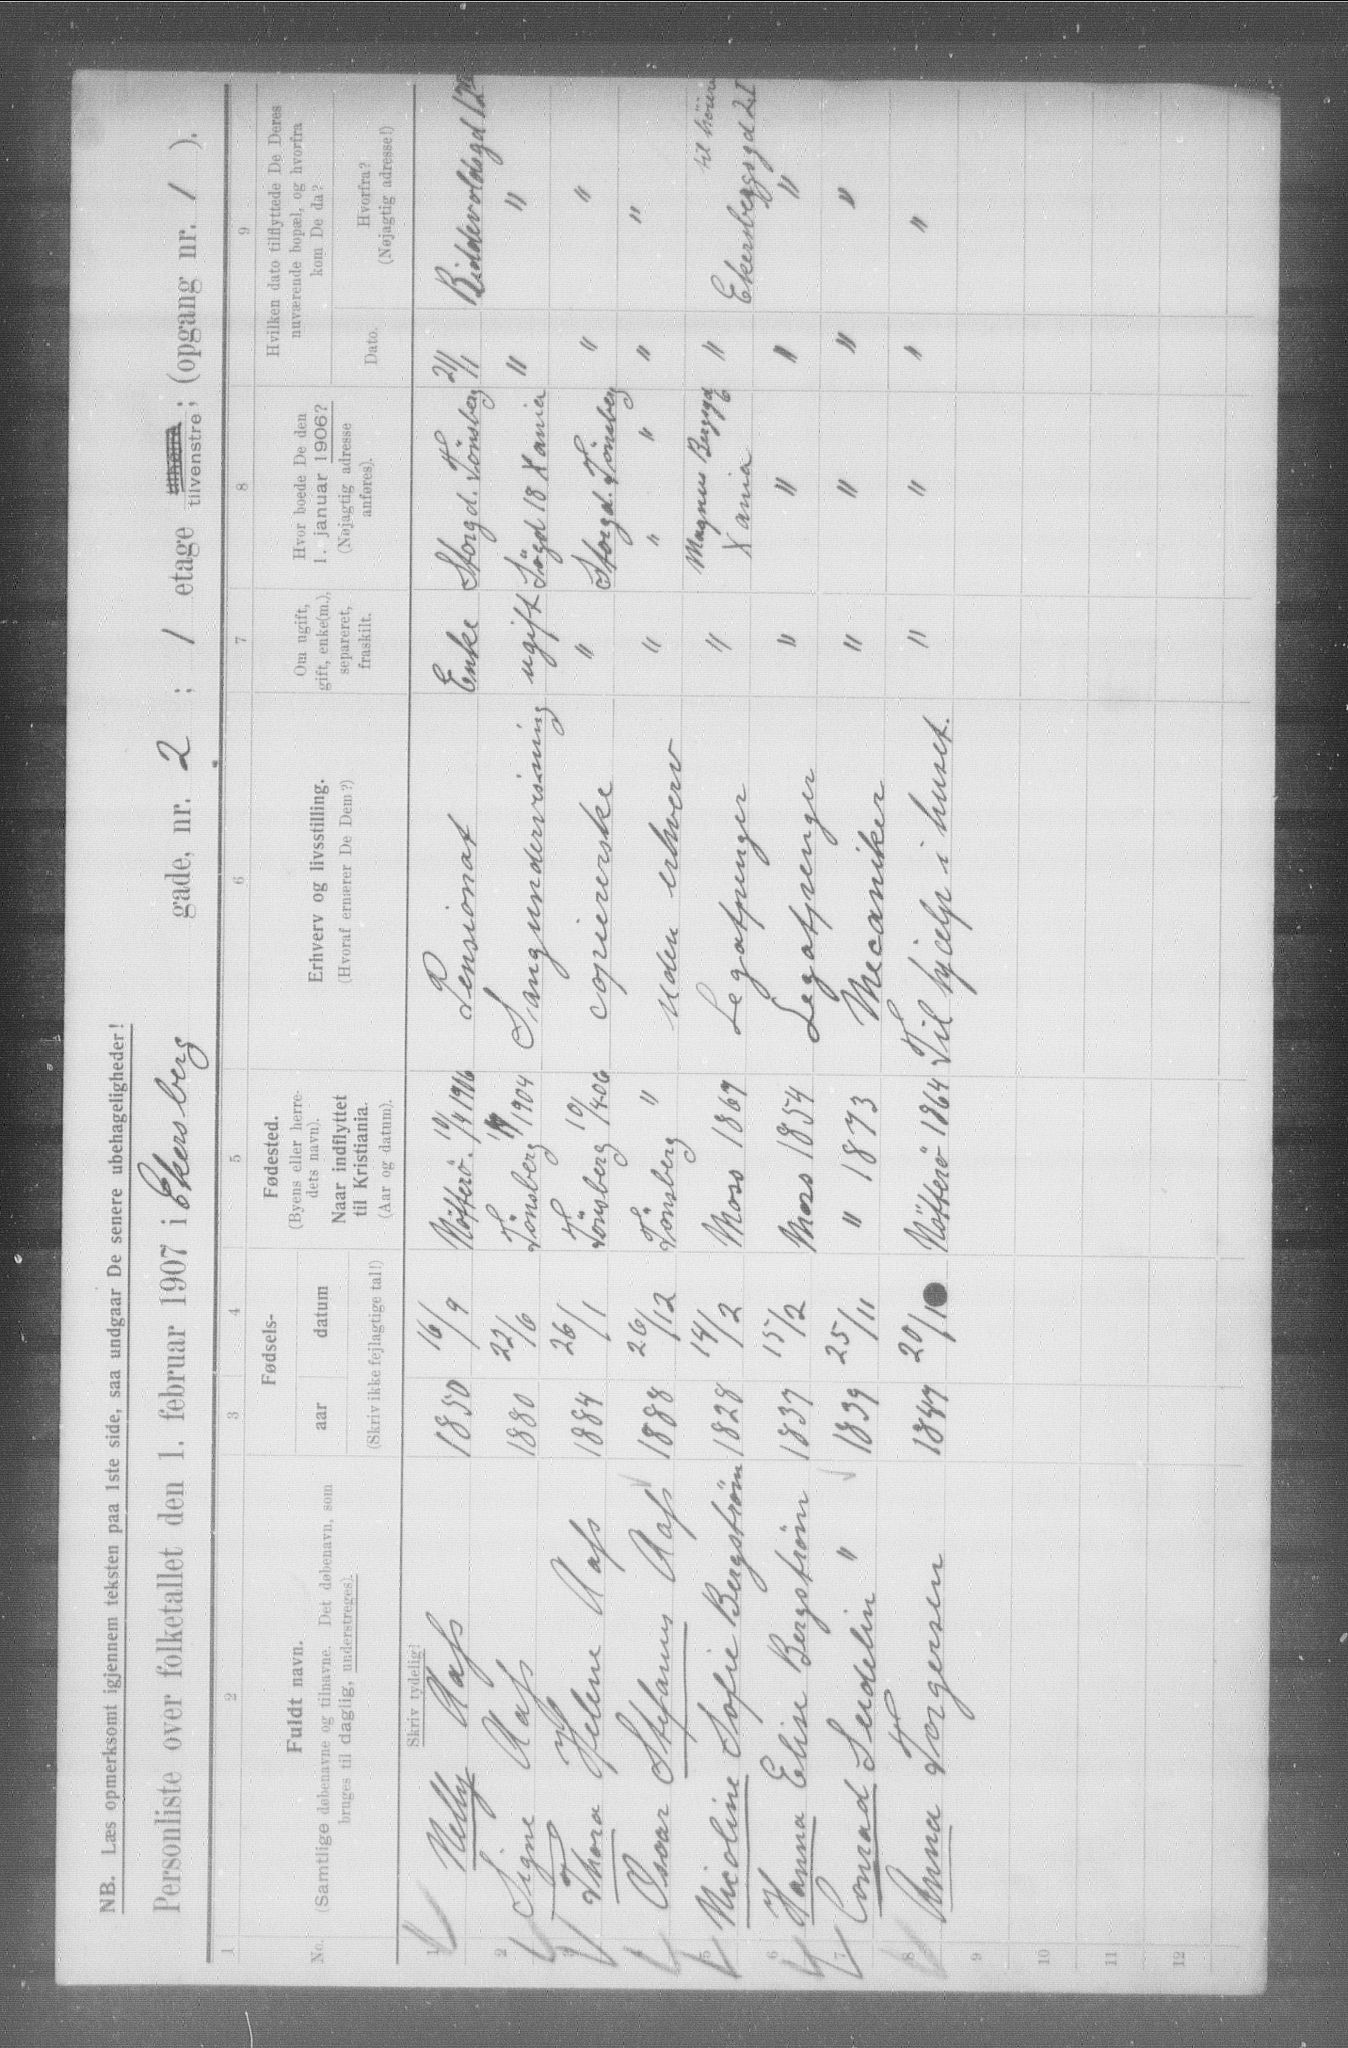 NB. Læs opmerksomt igjennem teksten paa 1ste side, saa undgaar De senere ubehageligheder!
Personliste over folketallet den 1. februar 1907 i Ekersberg gade, nr. 2 ; 1 etage tilvenstre ; (opgang nr. 1 ).
1 2 3 4 5 6 7 8 9
No.
Fuldt navn.
(Samtlige døbenavne og tilnavne. Det døbenavn, som
bruges til daglig, understreges).
Fødsels-
aar datum
(Skriv ikke fejlagtige tal!)
Fødested.
(Byens eller herre-
dets navn).
Naar indflyttet
til Kristiania.
(Aar og datum).
Erhverv og livsstilling.
(Hvoraf ernærer De Dem?)
Om ugift,
gift, enke(m.),
separeret,
fraskilt.
Hvor boede De den
1. januar 1906?
(Nøjagtig adresse
anføres).
Hvilken dato tilflyttede De Deres
nuværende bopæl, og hvorfra
kom De da?
Dato.
Hvorfra?
(Nøjagtig adresse!)
Skriv tydelig!
1 Nelly Aass 1850 16/9 Nötterö. Pensionat Enke Storgd. Tönsberg 21/1
2 Signe Aass 1880 22/6 Tönsberg 1904 Sangundervisning ugift 18 Xania " "
3 Thora Helene Aass 1884 26/1 Tönsberg copiererske " Storgd. Tönsberg " "
4 Oscar Stefanus Aass 1888 26/12 Tönsberg " uden erhverv " " " " "
5 Nicoline Sofie Bergström 1828 14/2 Moss 1869 Legatpenger " Magnus Bergsgd 6 Xania " Ekersbergsgd 2I til høire
6 Hanna Elise Bergström 1837 15/2 Moss 1854 Legatpenger " " " "
7 Conrad Severin " 1839 25/11 " 1873 Mecaniker " " " "
8 Anna Torgersen 20/1 Nötterö 1864 Til hjælp i huset. " " " "
9
10
11
12